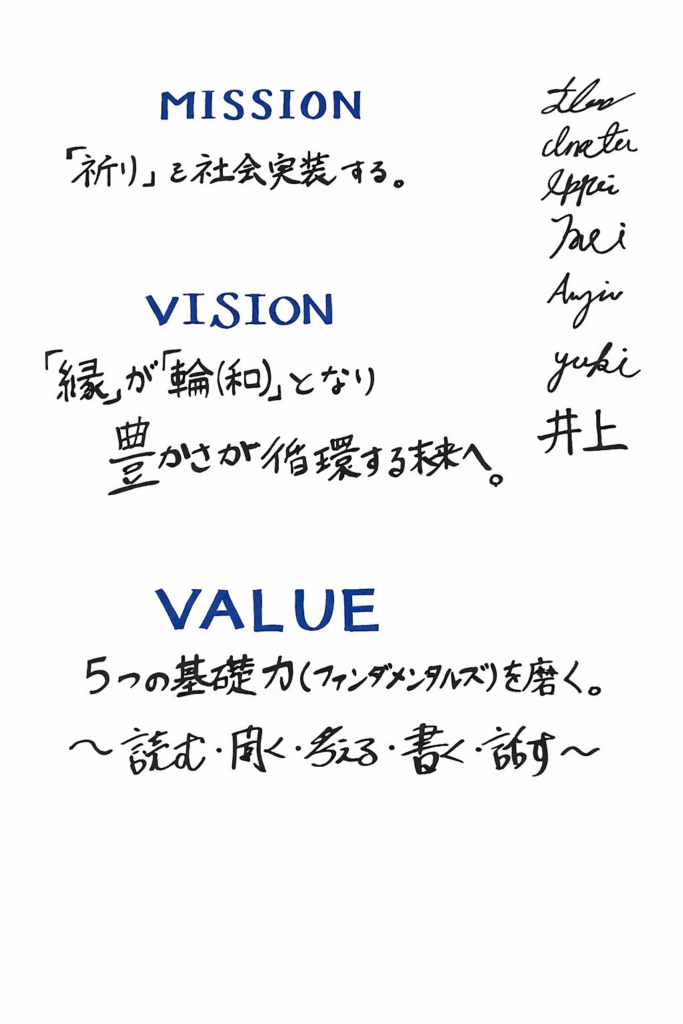 MISSION
「祈り」を社会実装する。
VISION
「縁」が「輪(和)」となり
豊かさが循環する未来へ。
VALUE
5つの基礎力(ファンダメンタルズ)を磨く。
～読む・聞く・考える・書く・話す～
yuki
井上